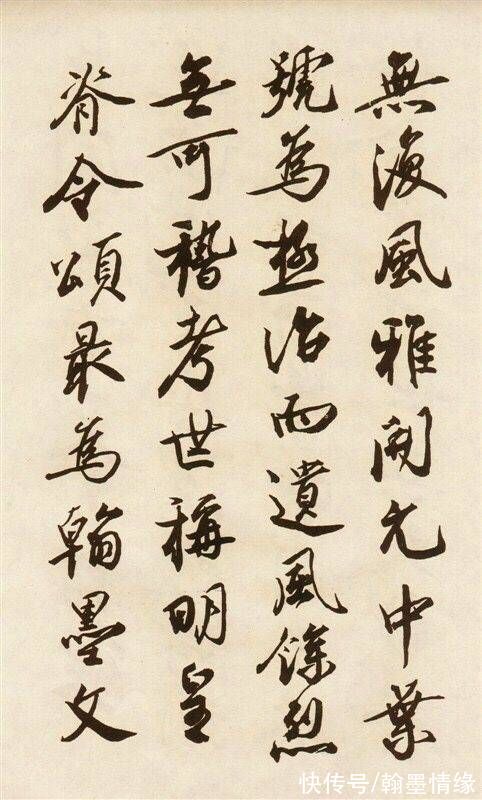 無復風雅開元中葉
號為極治而遺風餘烈
無可稽考世稱明皇
脊令頌最為翰墨文
快传号/翰墨情缘